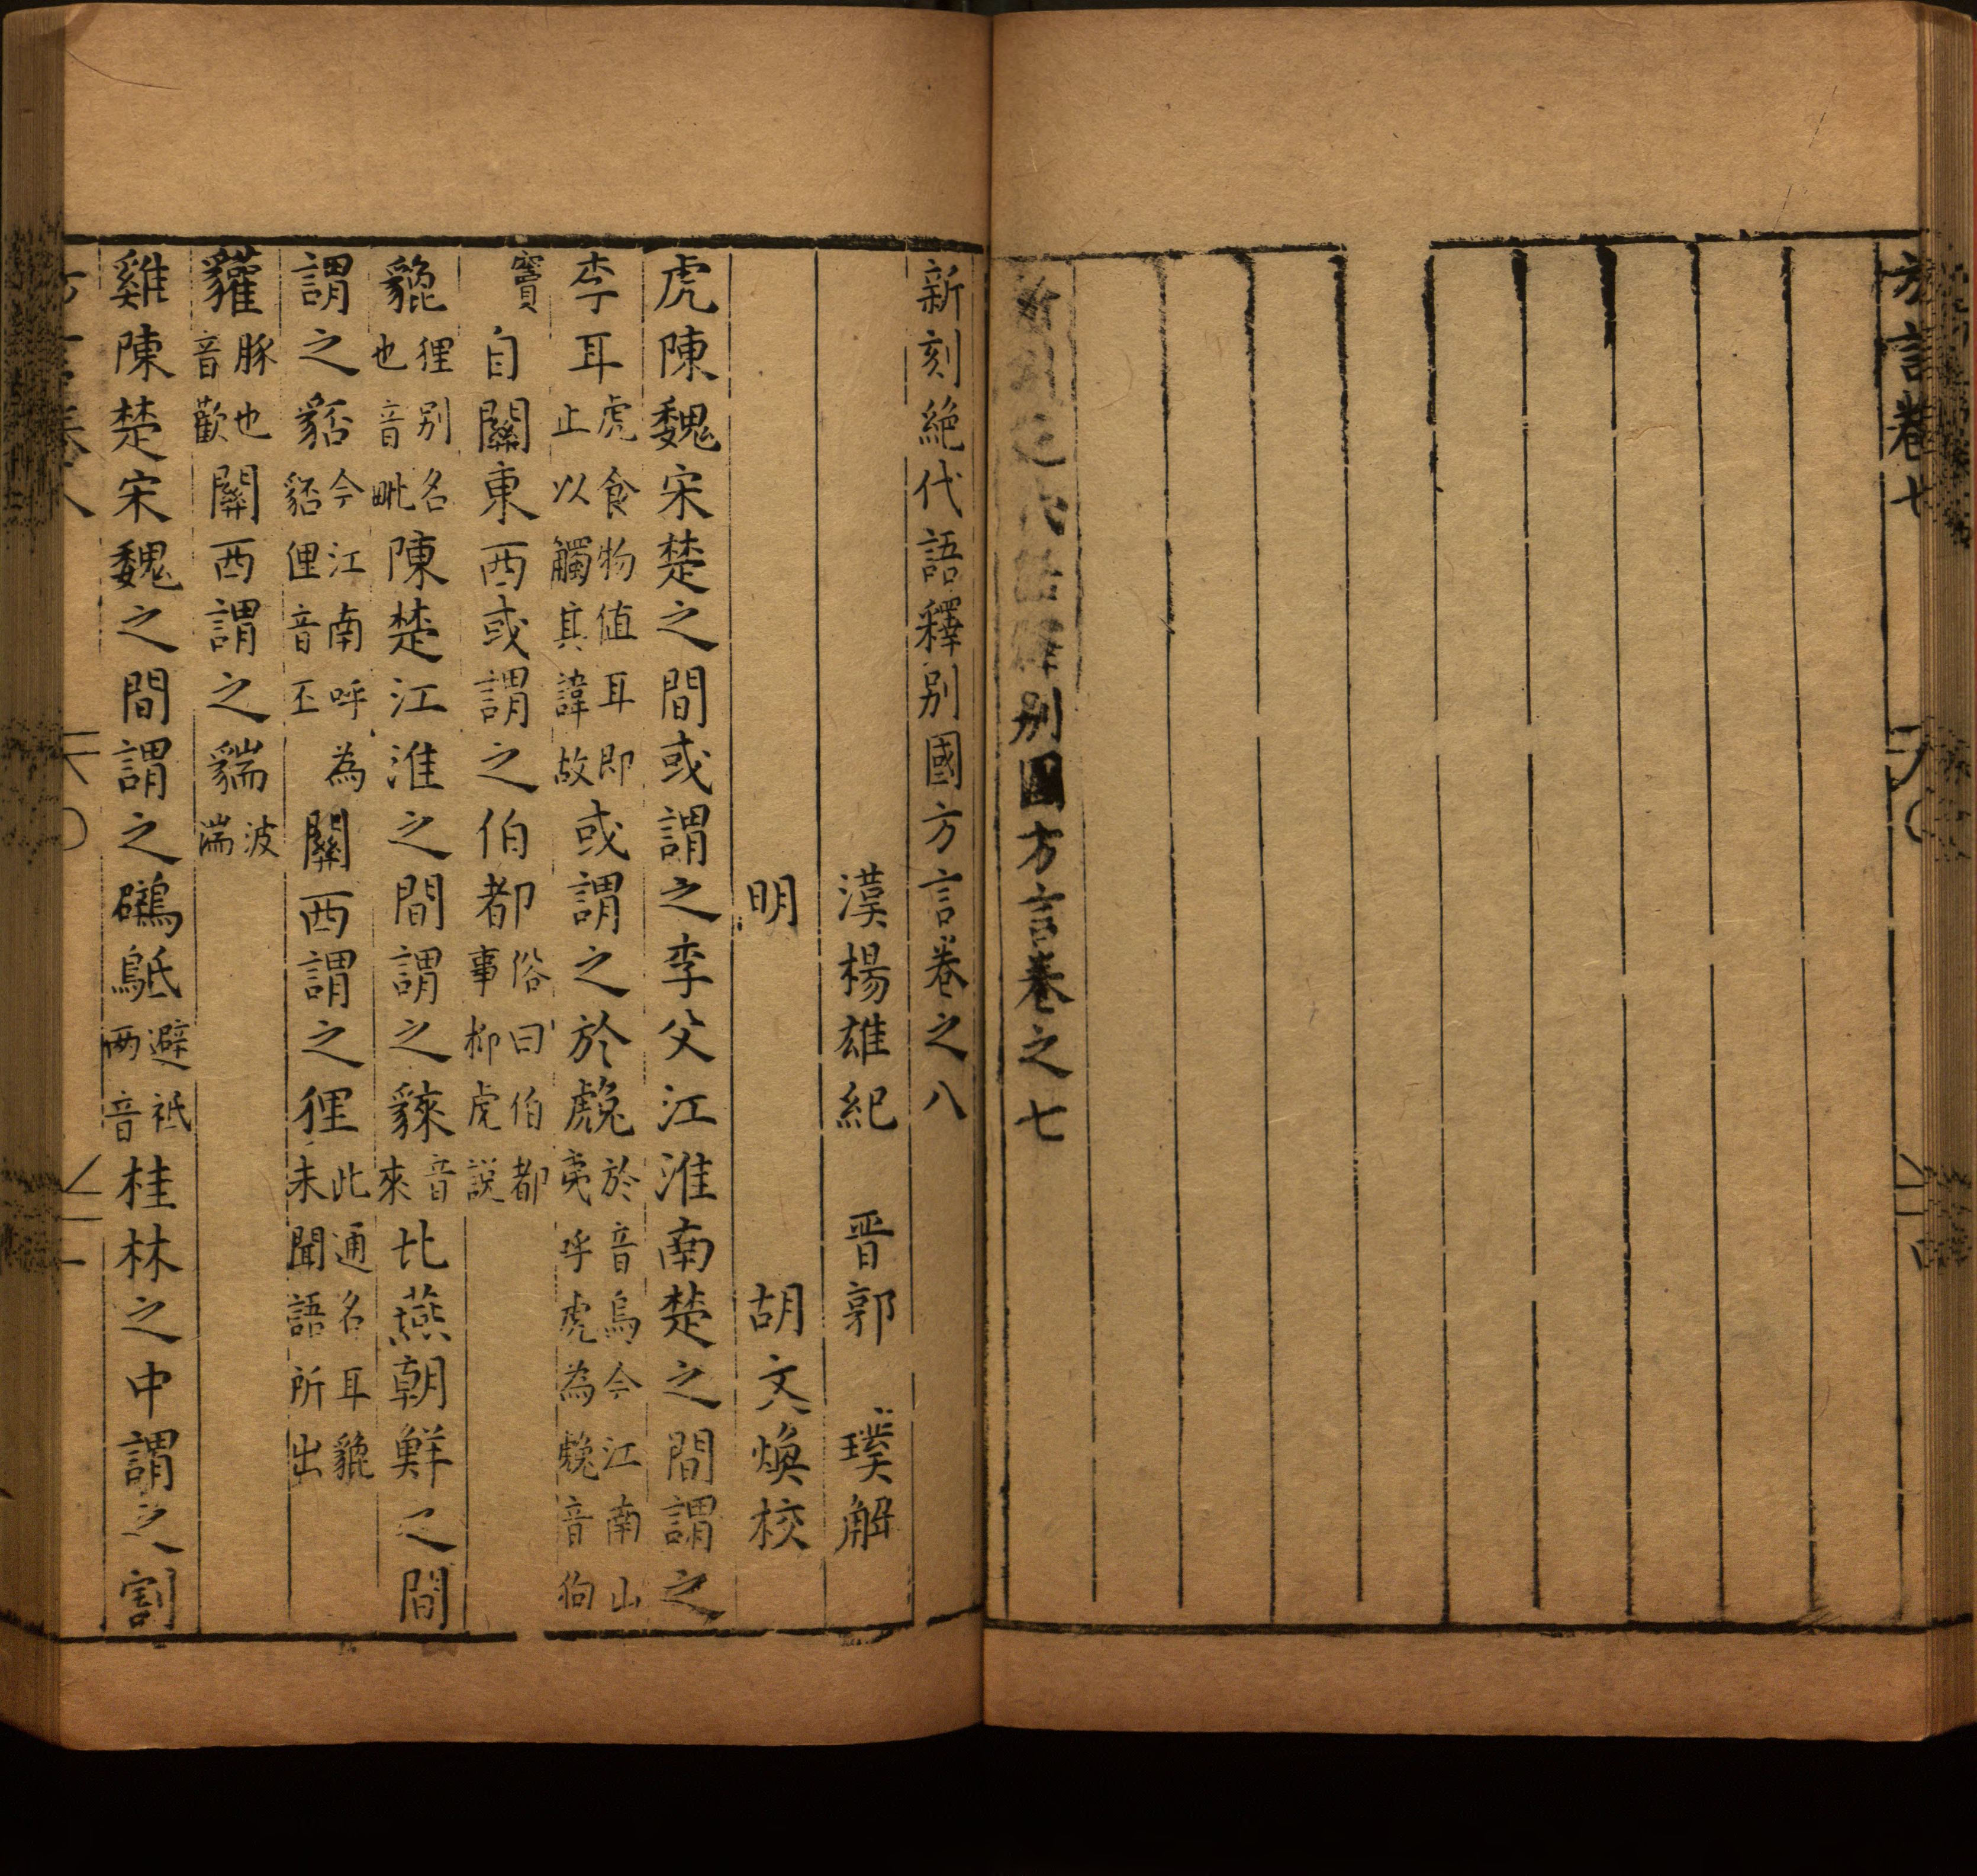 方言卷七
別國方言卷之七
新刻絕代語釋別國方言卷之八
漢楊雄紀 晋郭 璞解
明 胡文煥校
虎陳魏宋楚之間或謂之李父江淮南楚之間謂之
李耳虎食物值耳即止以觸其諱故或謂之於䖘於音烏今江南山夷呼虎為䖘音狗
竇自關東西或謂之伯都俗曰伯都事抑虎說
貔狸別名也音毗陳楚江淮之間謂之䅘音來北燕朝鮮之間
謂之貊今江南呼為貊狸音丕關西謂之狸此通名耳貔未聞語所出
貛豚也音歡關西謂之貒波湍
雞陳楚宋魏之間謂之鸊䳄避祇兩音桂林之中謂之割